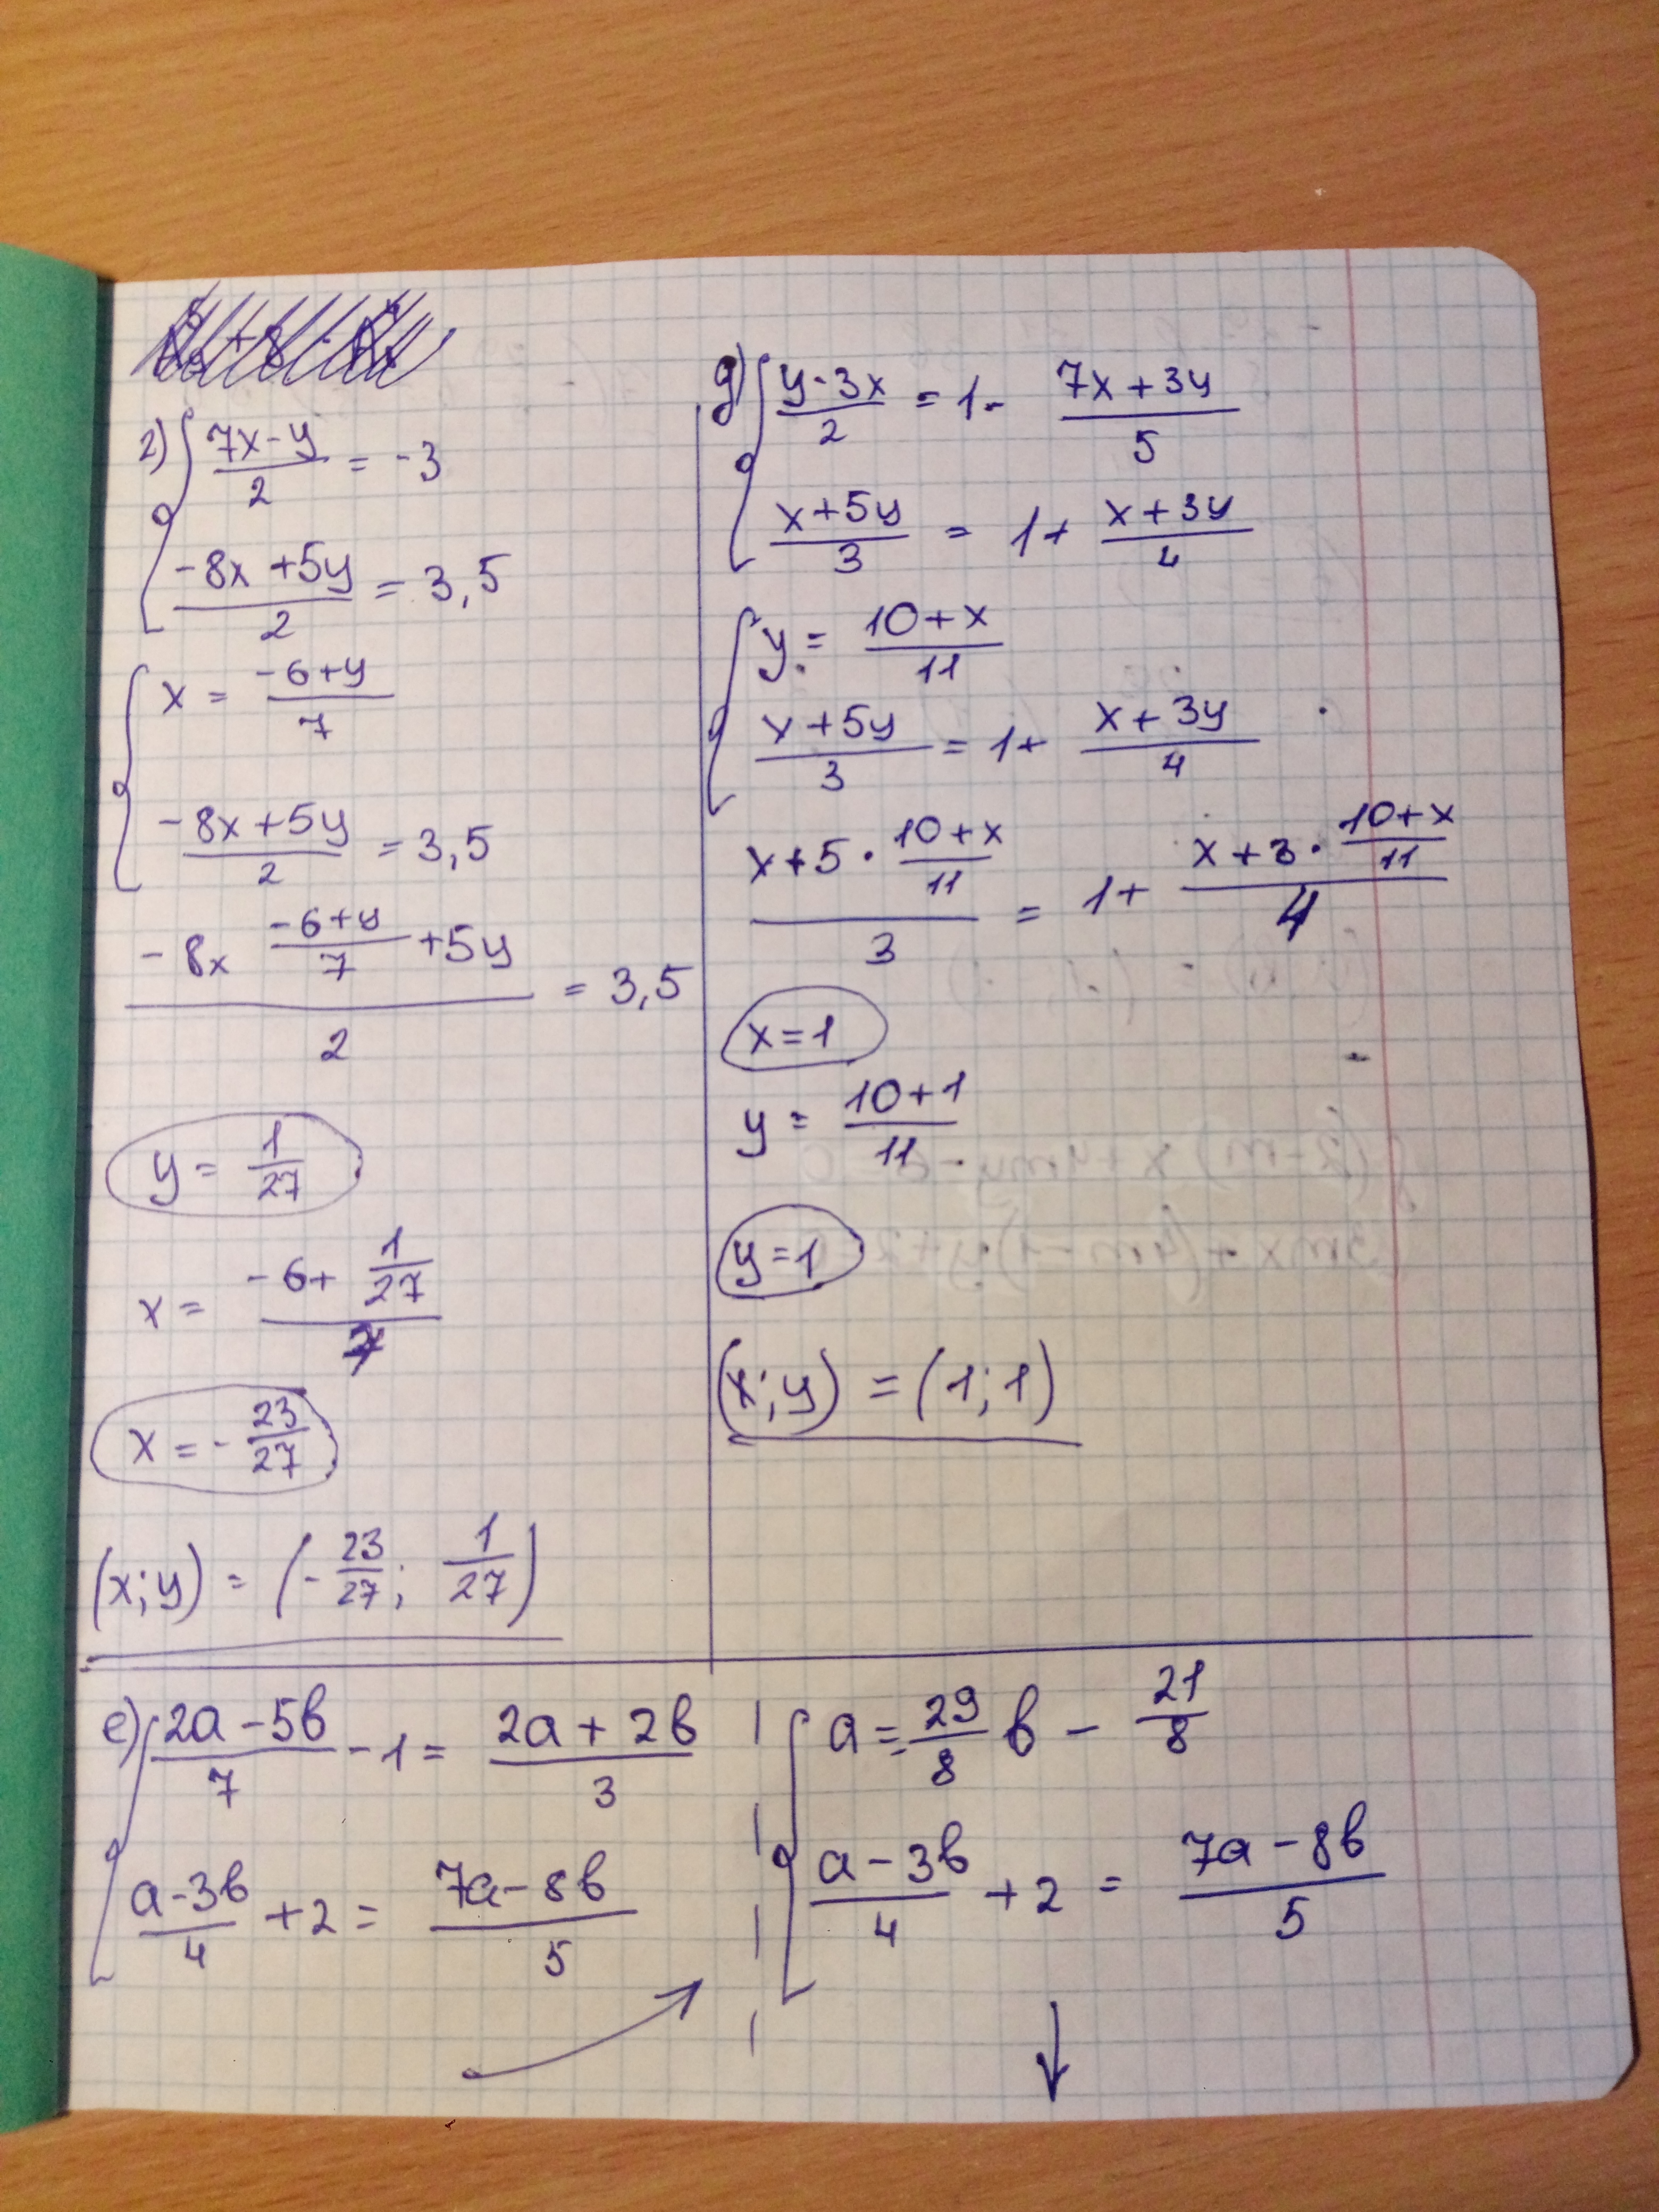 г) { (7x-y)/2 = -3
(-8x+5y)/2 = 3,5
{ x = (-6+y)/7
(-8x+5y)/2 = 3,5
(-8x (-6+y)/7 +5y)/2 = 3,5
y = 1/27
x = (-6+ 1/27)/7
x = - 23/27
(x;y) = (- 23/27; 1/27)
д) { (y-3x)/2 = 1- (7x+3y)/5
(x+5y)/3 = 1+ (x+3y)/4
{ y = (10+x)/11
(x+5y)/3 = 1+ (x+3y)/4
(x+5· (10+x)/11)/3 = 1+ (x+3· (10+x)/11)/4
x=1
y = (10+1)/11
y=1
(x;y) = (1;1)
е) { (2a-5b)/7 -1 = (2a+2b)/3
(a-3b)/4 +2 = (7a-8b)/5
{ a = 29/8 b - 21/8
(a-3b)/4 +2 = (7a-8b)/5